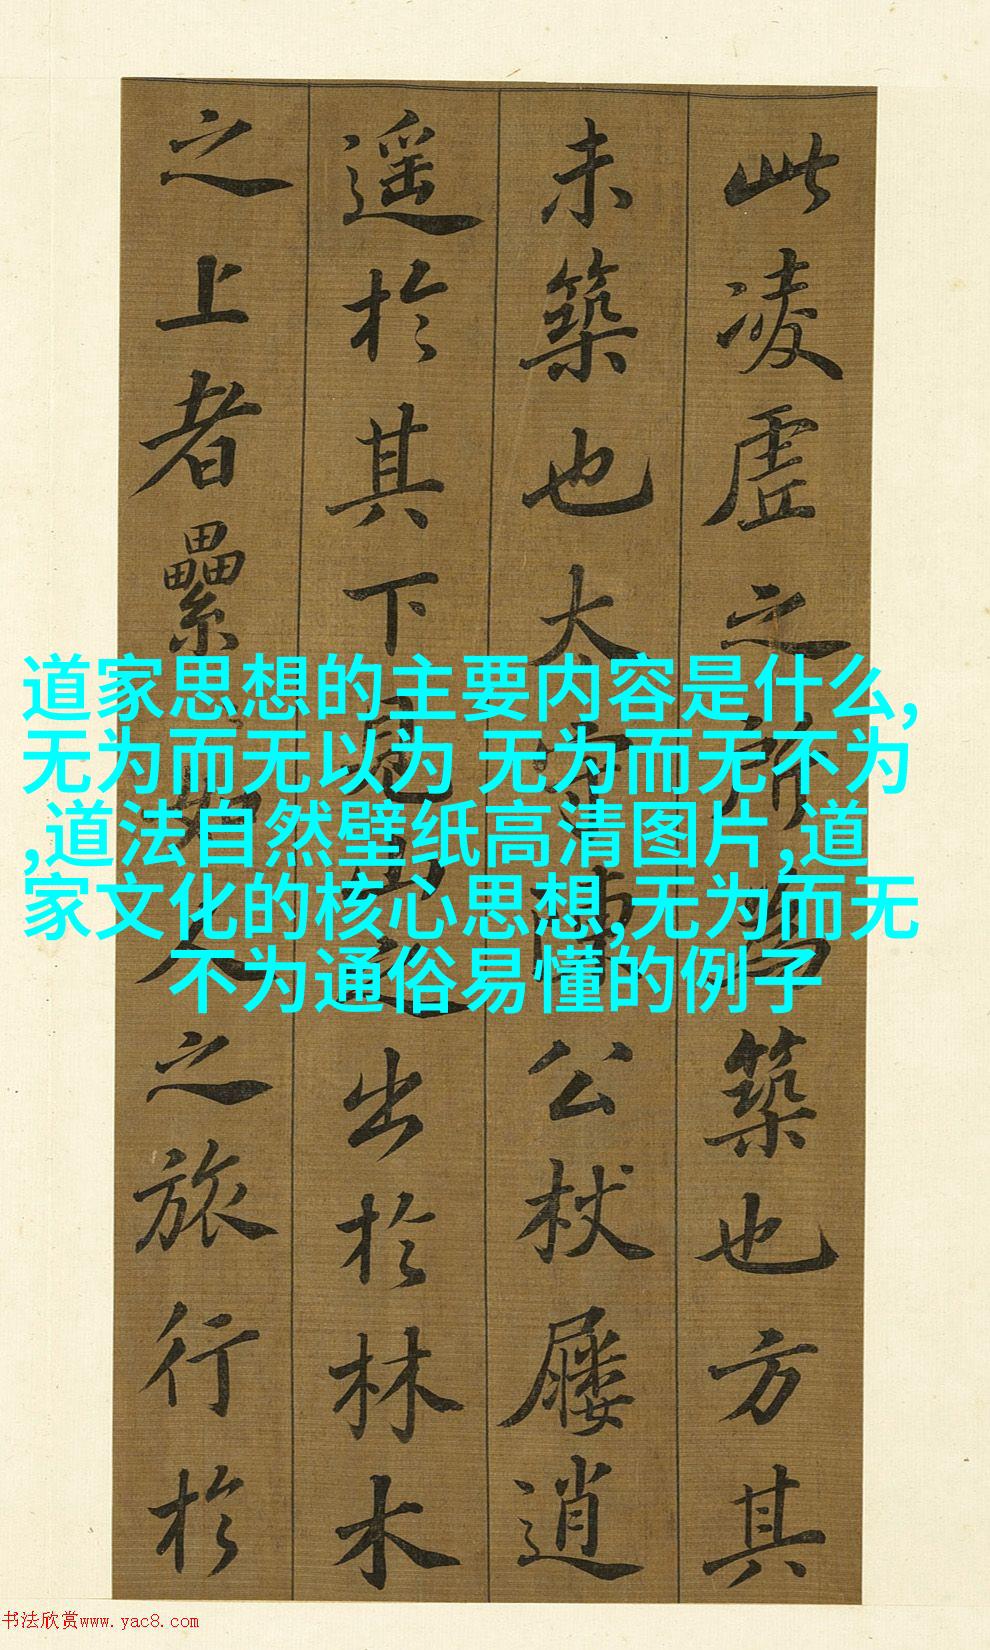 此凌虛之所為築也方其
未築也太守陳公杖屨逍
遥於其下見山之出於林木
之上者纍如人之旅行於
道家思想的主要内容是什么,
无为而无以为 无为而无不为
,道法自然壁纸高清图片,道
家文化的核心思想,无为而无
不为通俗易懂的例子
书法欣赏www.yac8.com